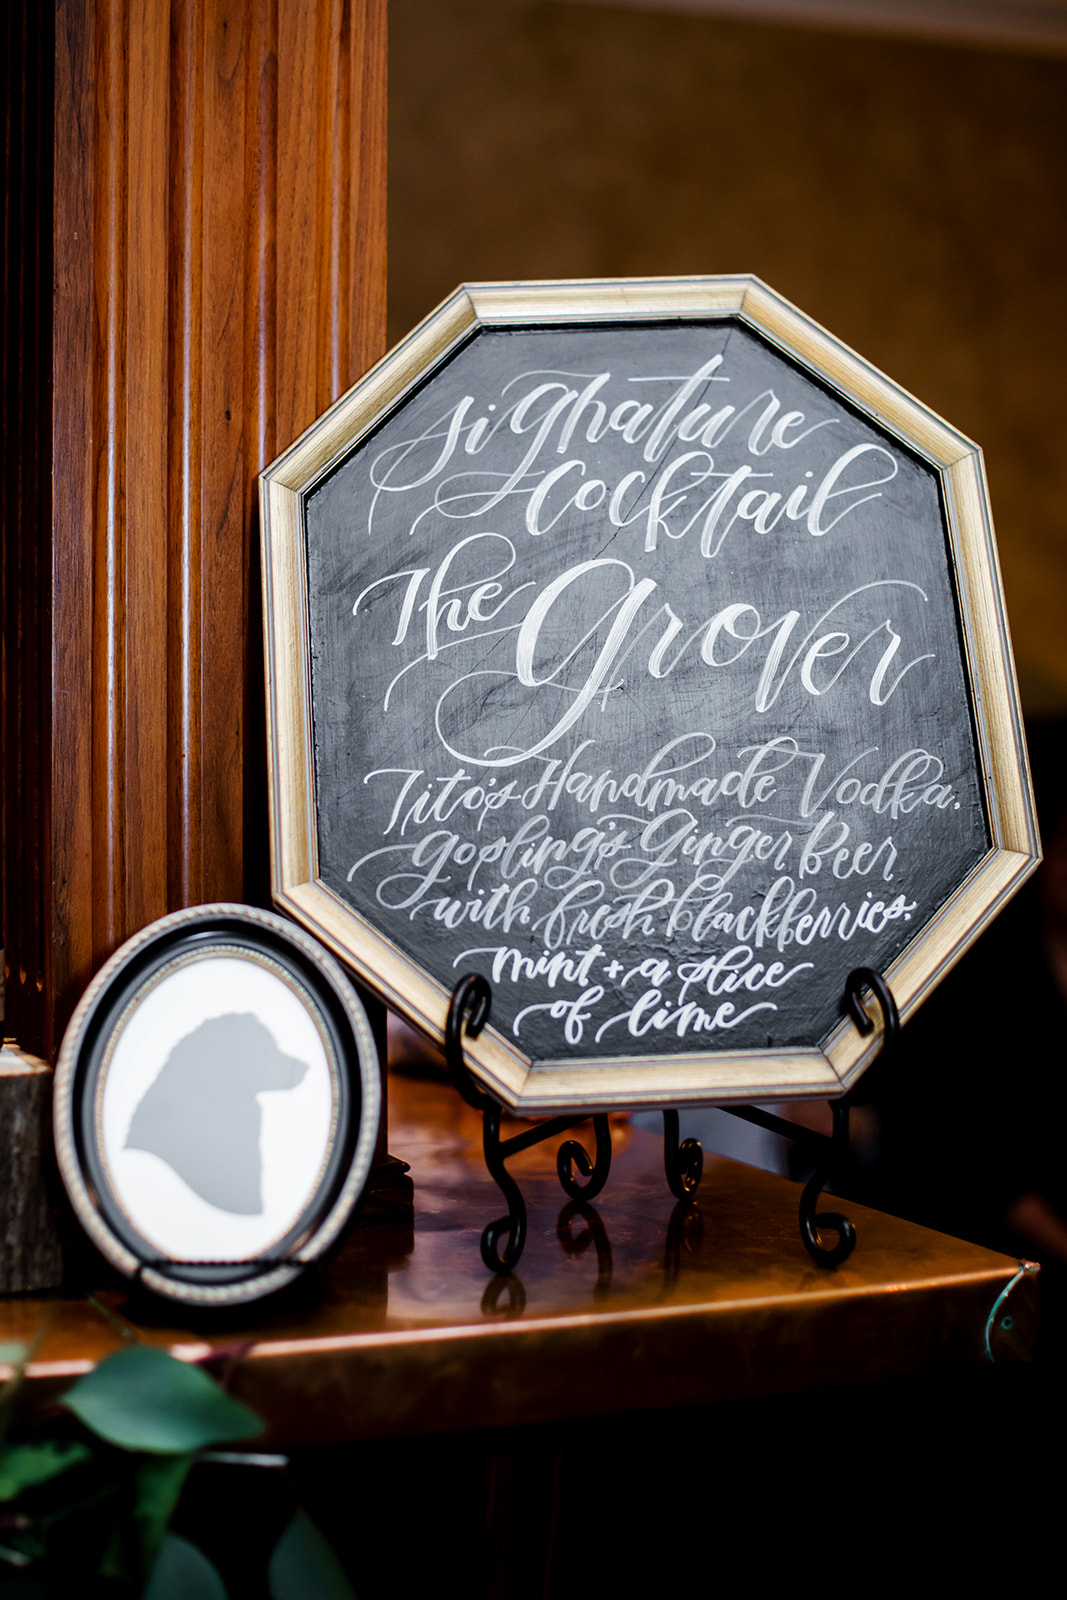 signature
Cocktail
The Grover
Tito's Handmade Vodka,
Gosling's Ginger Beer
with fresh blackberries,
mint + a slice
of lime